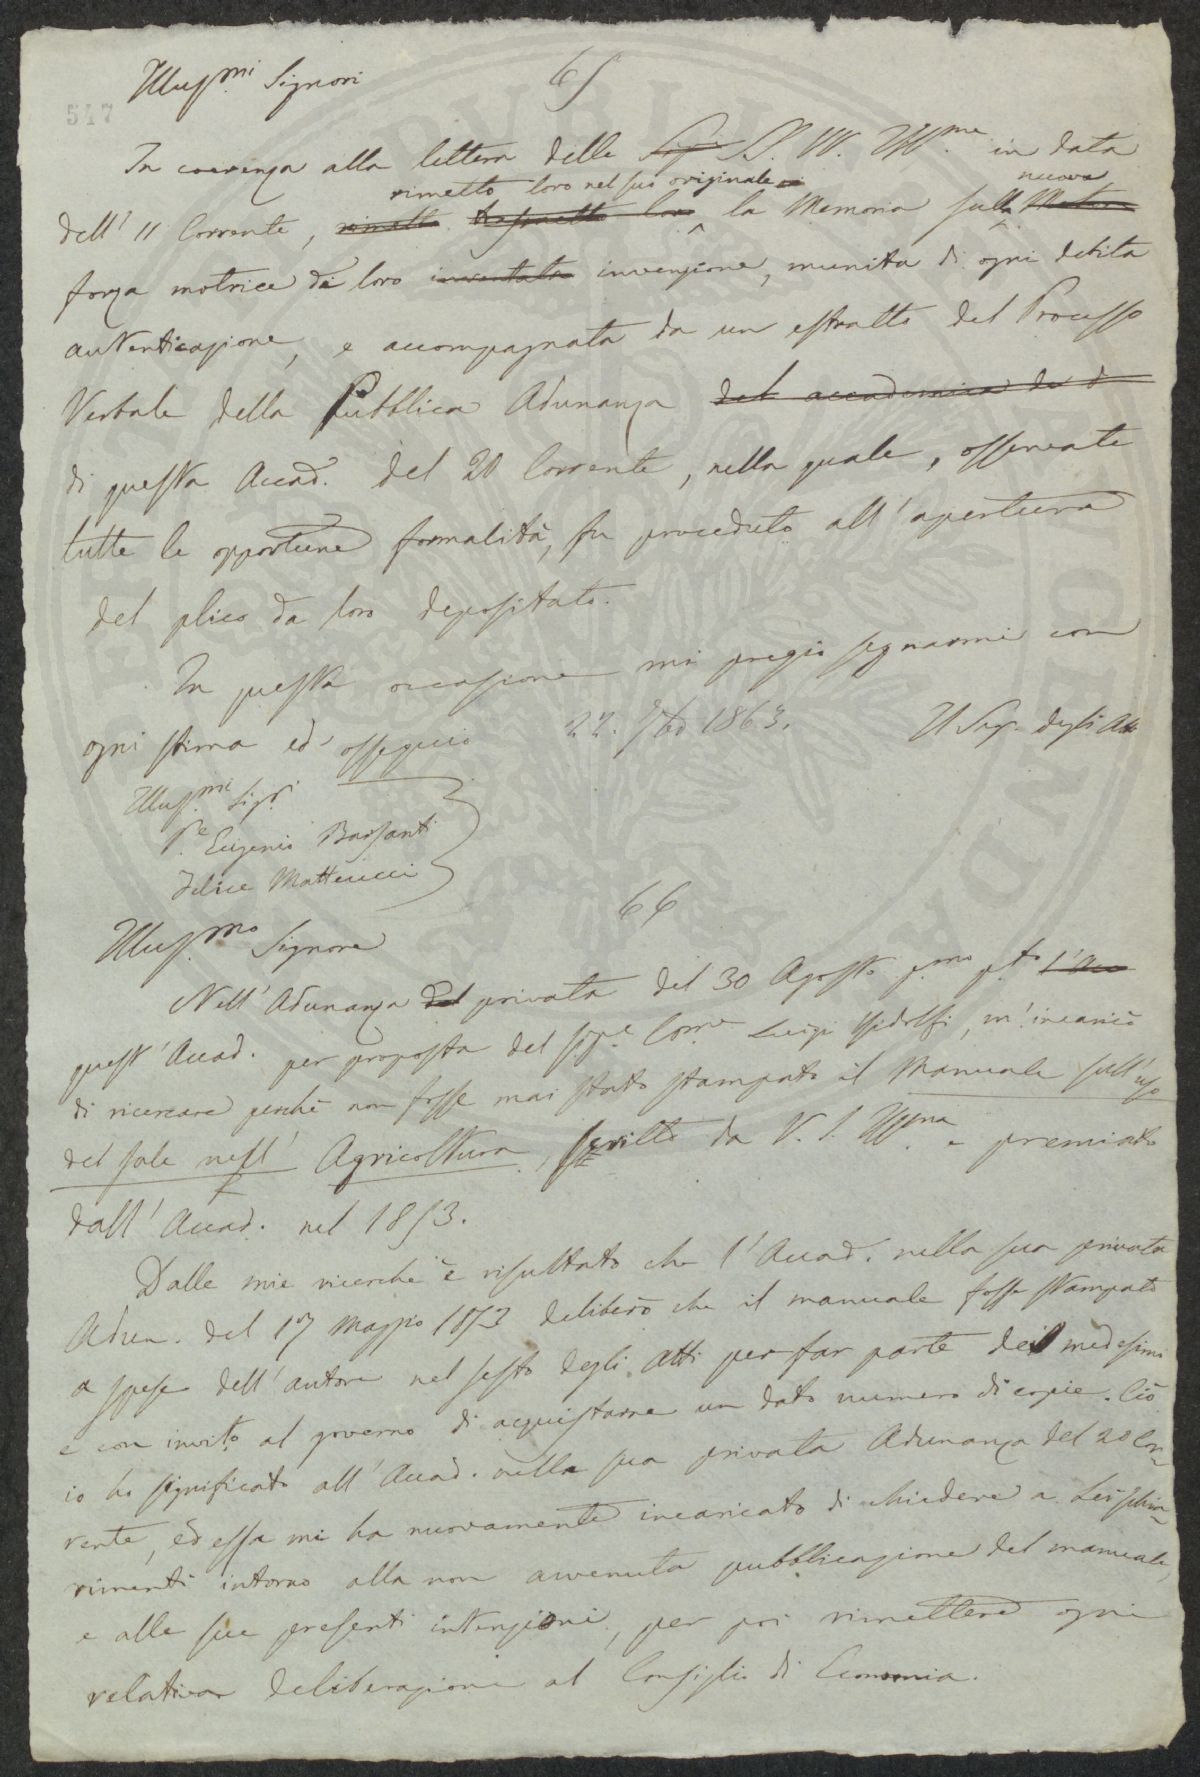 65
Illus.mi Signori
517
In coerenza alla lettera delle SS. VV. Ill.me in data
rimetto loro nel suo originale nuova
dell' 11 Corrente, la Memoria sulla
forza motrice di loro inventata invenzione, munita di ogni debita
autenticazione, e accompagnata da un estratto del Processo
Verbale della Pubblica Adunanza del accademica de d
di questa Accad. del 20 Corrente, nella quale, osservate
tutte le opportune formalità, fu proceduto all' apertura
del plico da loro depositato.
In questa occasione mi pregio segnarmi con
ogni stima ed ossequio 22. 1863. Il Seg. degli Atti
Illus.mi Sigri
P.e Eugenio Barsanti
Felice Matteucci
66
Illus.mo Signore
Nell' Adunanza privata del 30 Agosto p.mo p.to l'Acc
quest' Accad. per proposta del Sig.e Com.e Luigi Ridolfi, m' incaricò
di ricercare perchè non fosse mai stato stampato il Manuale sull' uso
del sale nell' Agricoltura, scritto da V. S. Ill.ma e premiato
dall' Accad. nel 1853.
Dalle mie ricerche è risultato che l' Accad. nella sua privata
Adun. del 17 Maggio 1853 deliberò che il manuale fosse stampato
a spese dell' autore nel sesto degli Atti per far parte dei medesimi
e con invito al governo di acquistarne un dato numero di copie. Ciò
io ho significato all' Accad. nella sua privata Adunanza del 20 Cor-
rente, ed essa mi ha nuovamente incaricato di chiedere a Lei schia-
rimenti intorno alla non avvenuta pubblicazione del manuale,
e alle sue presenti intenzioni, per poi rimettere ogni
relativa deliberazione al Consiglio di Economia.